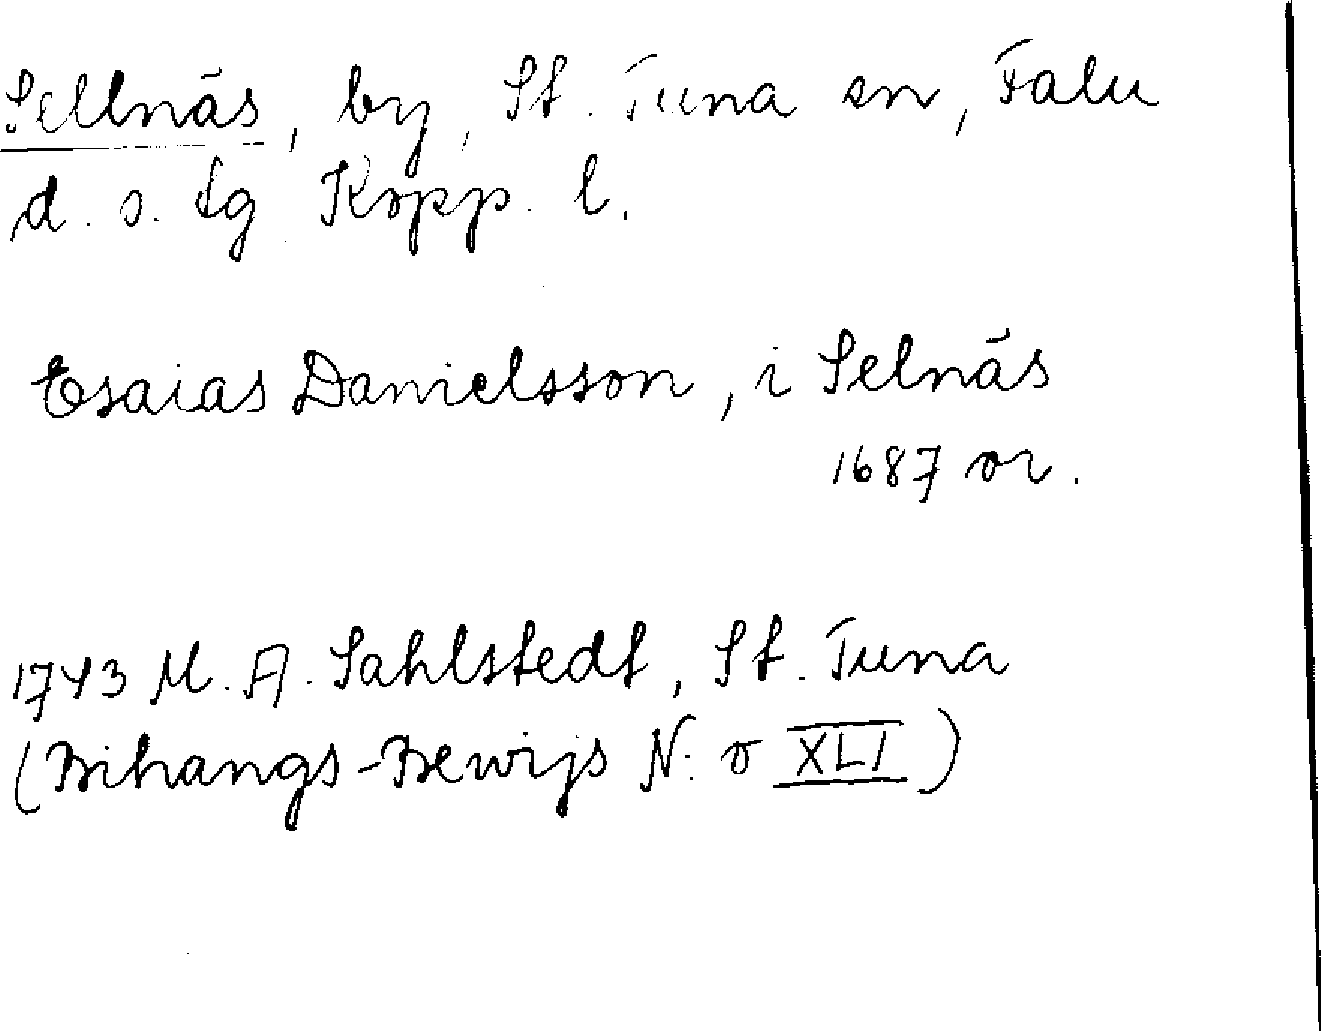 Sellnäs, by, St. Tuna sn, Falu
d. s. tg Kopp. l.
Esaias Danielsson, i Selnäs
1687 or.
1743 M. A. Sahlstedt, St. Tuna
(Bihangs-Bewijs N:o XLI)